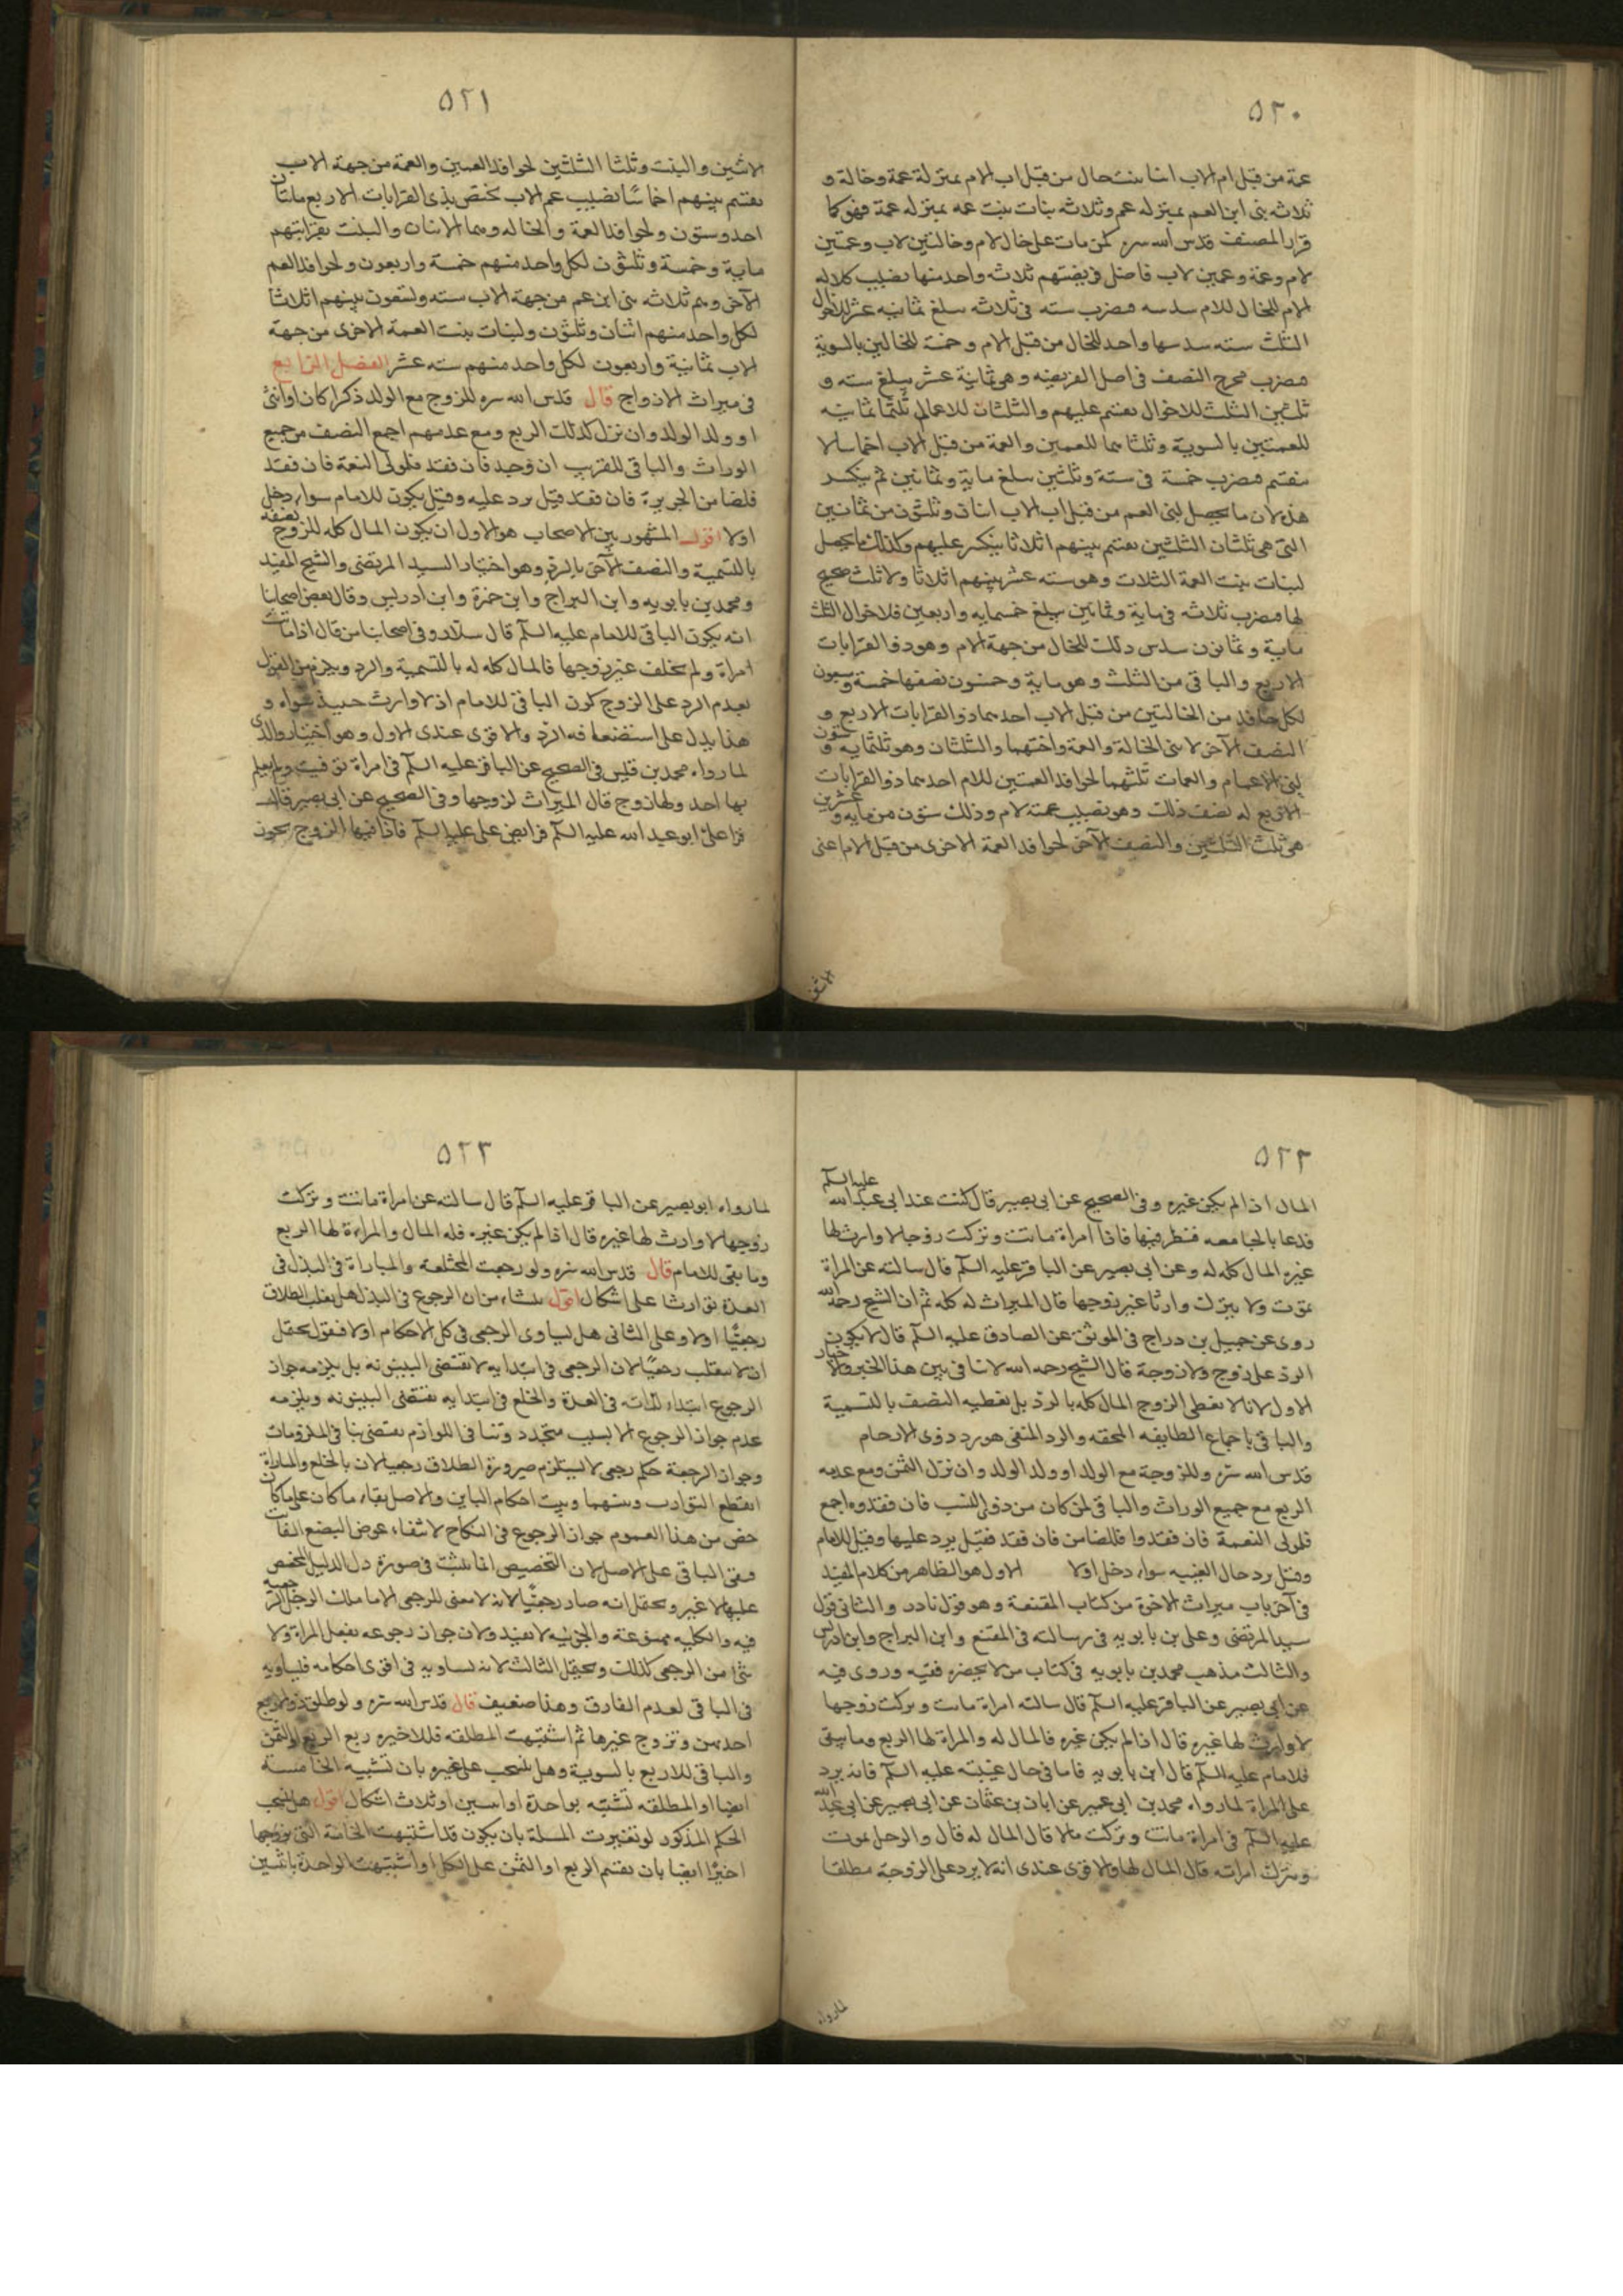 ٥٢٠
عمة من قبل ام الاب ابنا بنت خال من قبل اب الام بمنزلة عمة وخالة و
ثلاثه بنى ابن العم بمنزله عم وثلاثه بنات بنت عمه بمنزله عمة فهو كما
قرار المصنف قدس الله سره كمن مات على خال لام وخالتين لاب وعمتين
لام وعمة وعمين لاب فاصل فريضتهم ثلاثه واحد منها نصيب كلاله
الام للخال للام سدسه فضرب سته فى ثلاثه يبلغ ثمانيه عشر للاخوال
الثلث سته سدسها واحد للخال من قبل الام وخمسة للخالين بالسوية
فضرب مخرج النصف فى اصل الفريضه وهو ثمانية عشر يبلغ سته و
ثلثين الثلث للاخوال يقتسم عليهم والثلثان للاعمال ثلثها ثمانيه
للعمتين بالسوية وثلثا هما للعمين والعمة من قبل الاب اخماسا لا
ينقسم فضرب خمسة فى ستة وثلثين يبلغ ماية وثمانين ثم ينكسر
هذه لان ما يحصل لبنى العم من قبل اب الاب اثنان وثلثون من ثمانين
التى هى ثلثان الثلثين يقتسم بينهم اثلاثا ينكسر عليهم وكذلك ما يحصل
لبنات بنت العمة الثلاث وهو سته عشر بينهم اثلاثا ولا ثلث صحيح
لها فضرب ثلاثه فى ماية وثمانين يبلغ خسمايه واربعين فلاخوال الثلث
ماية وثمانون سدس ذلك للخال من جهة الام وهو ذو القرابات
الاربع والباقى من الثلث وهو ماية وخمسون نصفها خمسة وسبعون
لكل حافد من الخالتين من قبل الاب احدهما ذو القرابات الاربع و
النصف الآخر لابنى الخالة والعمة واختهما والثلثان وهو ثلثمايه و ستون
لبنى الاعمام والعمات ثلثهما لحوافد العمتين للام احدهما ذو القرابات
الاربع له نصف ذلك وهو نصيب عمة لام وذلك ستون من مايه وعشرين
هى ثلث الثلثين والنصف الآخر لحوافد العمة الاخرى من قبل الام اعنى
٥٢١
الاثنين والبنت وثلثا الثلثين لحوافد العمين والعمة من جهة الاب
يقتسم بينهم اخماسا نصيب عم الاب يختص بذى القرابات الاربع مائتان
احد وستون ولحوافد العمة والخاله وهما الابنان والبنت بقرابتهم
ماية وخمسة وثلثون لكل واحد منهم خمسة واربعون ولحوافد العم
الآخر وهم ثلاثه بنى ابن عم من جهة الاب سته وتسعون بينهم اثلاثا
لكل واحد منهم اثنان وثلثون ولبنات بنت العمة الاخرى من جهة
الاب ثمانية واربعون لكل واحد منهم سته عشر الفصل الرابع
فى ميراث الازواج قال قدس الله سره للزوج مع الولد ذكرا كان او انثى
او ولد الولد وان نزل كذلك الربع ومع عدمهم اجمع النصف من جميع
الوراث والباقى للقريب ان وجد فان فقد فلولى النعمة فان فقد
فلضامن الجريرة فان فقد قيل يرد عليه وقيل يكون للامام سواء دخل
اولا اقول المشهور بين الاصحاب هو الاول ان يكون المال كله للزوج نصفه
بالتسمية والنصف الآخر بالرد وهو اختيار السيد المرتضى والشيخ المفيد
ومحمد بن بابويه وابن البراج وابن حمزة وابن ادريس وقال بعض اصحابنا
انه يكون الباقى للامام عليه السلم قال سلار وفى اصحابنا من قال اذا ماتت
امراة ولم تخلف غير زوجها فالمال كله له بالتسمية والرد ويلزم من القول
بعدم الرد على الزوج كون الباقى للامام اذ لا وارث حينئذ سواه و
هذا يدل على استضعافه الرد والاقوى عندى الاول وهو اختيار والدى
لما رواه محمد بن قيس فى الصحيح عن الباقر عليه السلم فى امراة توفيت ولم يعلم
بها احد ولها زوج قال الميراث لزوجها وفى الصحيح عن ابى بصير قال
قرا على ابو عبد الله عليه السلم فرايض على عليه السلم فاذا فيها الزوج يحوز
٥٢٢
المال اذا لم يكن غيره وفى الصحيح عن ابى بصير قال كنت عند ابى عبد الله عليه السلم
فدعا بالجامعه فنظر فيها فاذا امراة ماتت وتركت زوجها لا وارث لها
غيره المال كله له وعن ابى بصير عن الباقر عليه السلم قال سالته عن المراة
تموت ولا تترك وارثا غير زوجها قال الميراث له كله ثم ان الشيخ رحمه الله
روى عن جميل بن دراج فى الموثق عن الصادق عليه السلم قال لا يكون
الرد على زوج ولا زوجة قال الشيخ رحمه الله لا تنافى بين هذا الخبر والاخبار
الاول لانا لا نعطى الزوج المال كله بالرد بل نعطيه النصف بالتسمية
والباقى باجماع الطايفه المحقه والرد المنفى هو رد ذوى الارحام
قدس الله سره وللزوجة مع الولد او ولد الولد وان نزل الثمن ومع عدمه
الربع مع جميع الوراث والباقى لمن كان من ذوى النسب فان فقدوه اجمع
فلمولى النعمة فان فقدوا فللضامن فان فقد فقيل يرد عليها وقيل للامام
وقيل يرد حال الغيبه سواء دخل اولا الاول هو الظاهر من كلام المفيد
فى آخر باب ميراث الاخوة من كتاب المقنعة وهو قول نادر والثانى قول
سيد المرتضى وعلى بن بابويه فى رسالته فى المقنع وابن البراج وابن ادريس
والثالث مذهب محمد بن بابويه فى كتاب من لا يحضره فقيه وروى فيه
عن ابى بصير عن الباقر عليه السلم قال سالته امراة ماتت وتركت زوجها
لا وارث لها غيره قال اذا لم يكن غيره فالمال له والمراة لها الربع وما بقى
فللامام عليه السلم قال ابن بابويه فاما فى حال غيبته عليه السلم فانه يرد
على المراة لما رواه محمد بن ابى عمير عن ابان بن عثمان عن ابى بصير عن ابى عبد الله
عليه السلم فى امراة ماتت وتركت مالا قال المال له قال والرجل يموت
ويترك امراته قال المال لها والاقوى عندى انه لا يرد على الزوجة مطلقا
لما رواه
٥٢٣
لما رواه ابو بصير عن الباقر عليه السلم قال سالته عن امراة ماتت وتركت
زوجها لا وارث لها غيره قال اذا لم يكن غيره فله المال والمراة لها الربع
وما بقى للامام قال قدس الله سره ولو رجعت المختلعة والمباراة فى البذل فى
العدة توارثا على اشكال اقول ينشاء من ان الرجوع فى البذل هل يقلب الطلاق
رجعيا اولا وعلى الثانى هل يساوى الرجعى فى كل الاحكام اولا فنقول يحتمل
ان لا ينقلب رجعيا لان الرجعى فى ابتدايه لا يقتضى البينونه بل يلزمه جواز
الرجوع ابتداء لذاته فى العدة والخلع فى ابتدايه يقتضى البينونه ويلزمه
عدم جواز الرجوع الا بسبب متجدد وتنافى اللوازم يقتضى تنافى الملزومات
وجواز الرجعة حكم رجعى لا يستلزم صيرورة الطلاق رجعيا لان بالخلع والمباراة
انقطع التوارث بينهما وثبت احكام الباين والاصل بقاء ما كان على ما كان
خص من هذا العموم جواز الرجوع فى النكاح لانتفاء عوض البضع الفائت
فبقى الباقى على الاصل لان التخصيص انما يثبت فى صورة دل الدليل المخصص
عليها لا غير ويحتمل انه صار رجعيا لانه لا معنى للرجعى الا ما ملك الرجل الرجعة
فيه والكليه ممنوعة والجزئيه لا تفيد ولان جواز رجوعه بفعل المراة ولا
شئ من الرجعى كذلك ويحتمل الثالث لانه يساويه فى اقوى احكامه فيساويه
فى الباقى لعدم الفارق وهذا ضعيف قال قدس الله سره ولو طلق ذو الاربع
احدهن وتزوج غيرها ثم اشتبهت المطلقه فللاخيره ربع الربع او الثمن
والباقى للاربع بالسوية وهل ينسحب على غيره بان تشتبه الخامسة
ايضا او المطلقه تشتبه بواحدة او اثنين او ثلاث اشكال اقول هل ينسحب
الحكم المذكور لو تغيرت المسلة بان يكون قد اشتبهت الخامسة التى تزوجها
اخيرا ايضا بان يقتسم الربع او الثمن على الكل او اشتبهت الواحدة باثنين